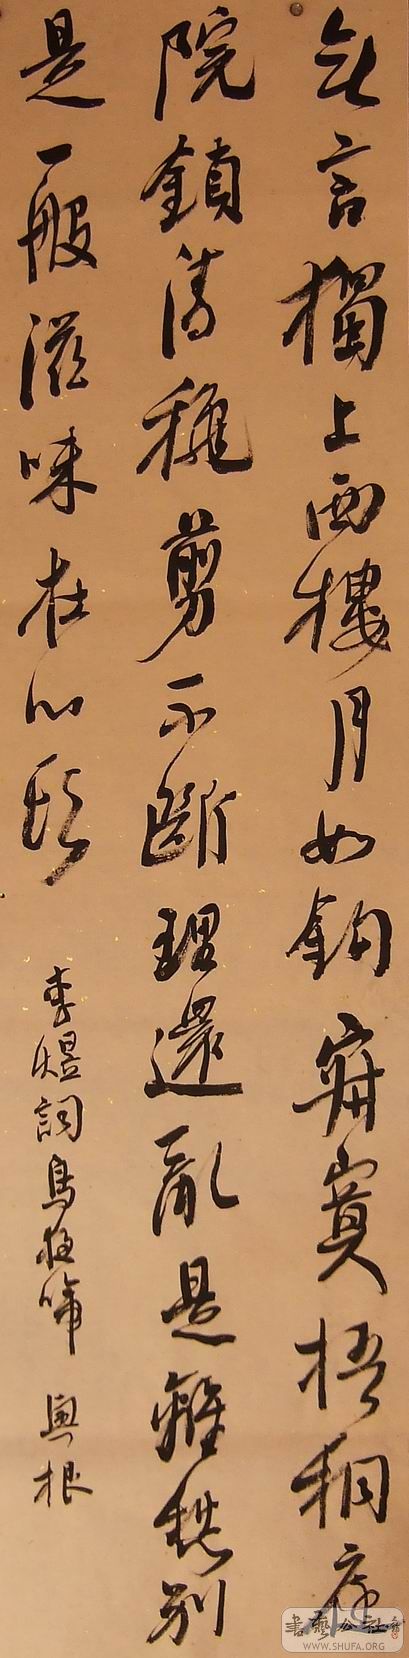 無言獨上西樓月如鈎寂寞梧桐庭
院鎖清秋剪不斷理還亂是離愁別
是一般滋味在心頭
李煜詞烏夜啼 根
書藝公社
WWW.SHUFA.ORG